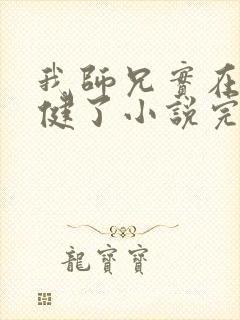 我師兄實在
健了小說完
龍寶寶